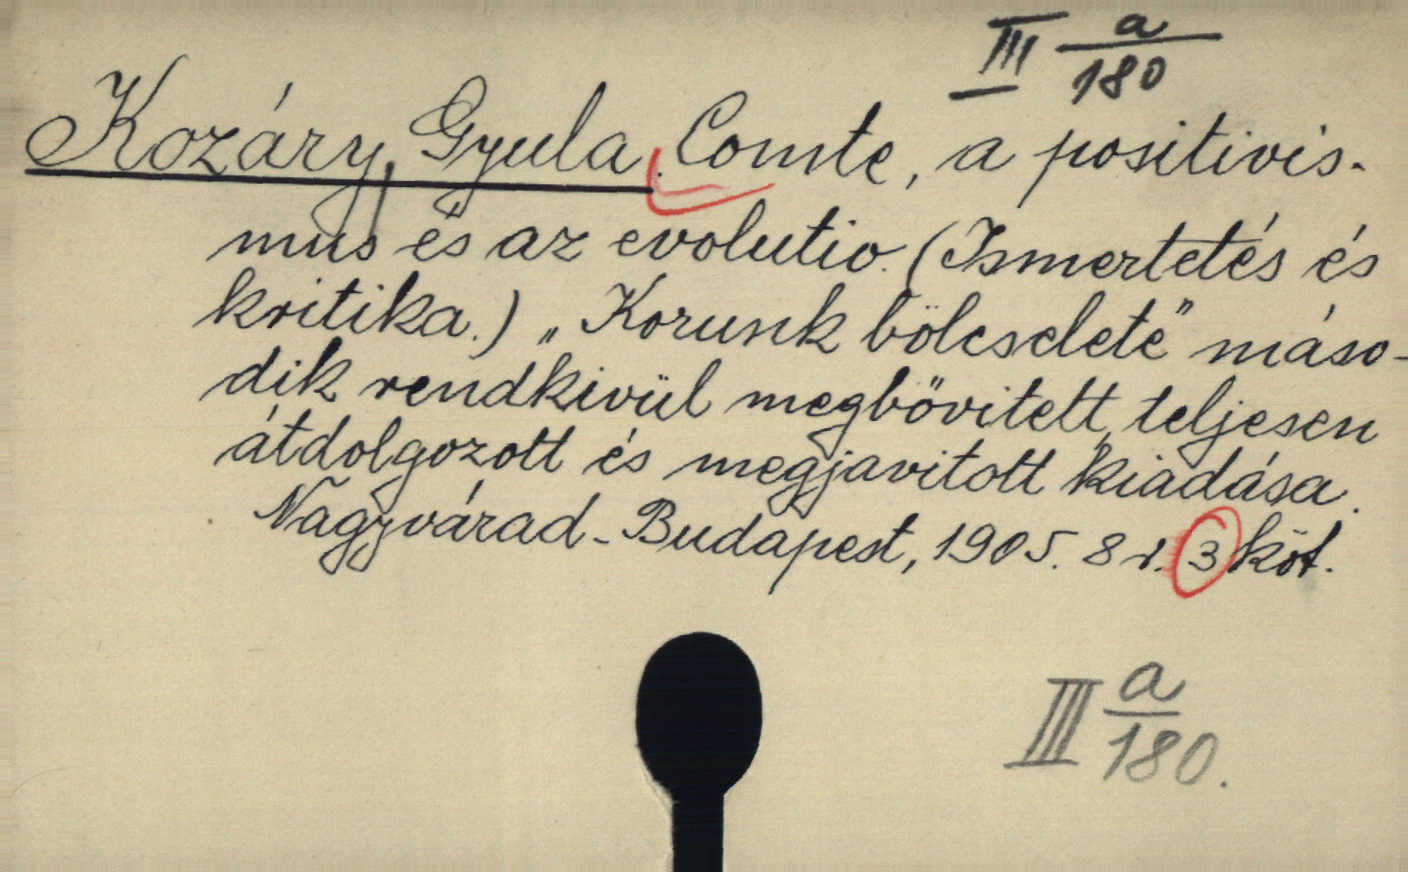 III a/180
Kozáry, Gyula. Comte, a positivis-
mus és az evolutio. (Ismertetés és
kritika.) „Korunk bölcselete" máso-
dik rendkivül megbővitett, teljesen
átdolgozott és megjavitott kiadása.
Nagyvárad-Budapest, 1905. 8 r. 3 köt.
III a/180.